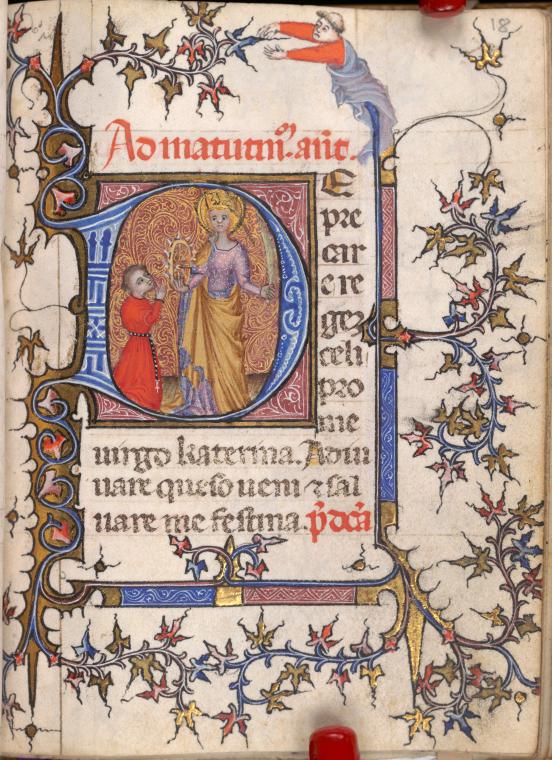 18
Ad matutin. ant.
D E
pre
car
e re
geʒ
celi
pro
me
uirgo katerina. Adiu
uare queso ueni ⁊ sal
uare me festina.